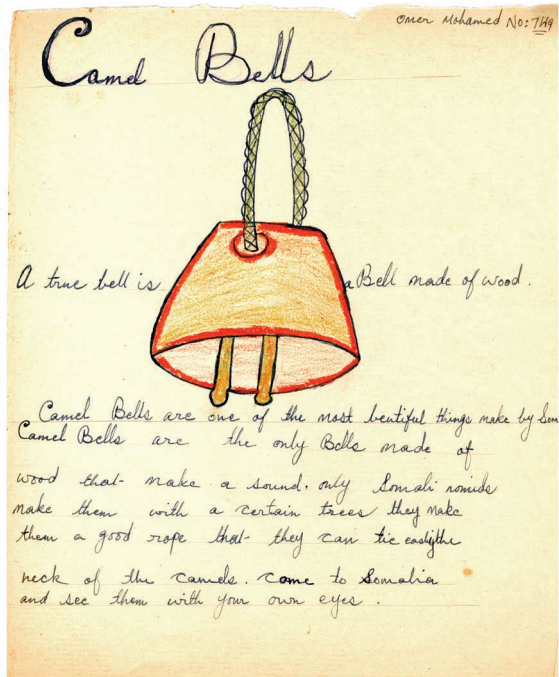 Omer Mohamed No: 7H9
Camel Bells
A true bell is a Bell made of wood.
Camel Bells are one of the most beutiful things make by Som
Camel Bells are the only Bells made of
wood that make a sound. only Somali nomids
make them with a certain trees they make
them a good rope that they can tie easily the
neck of the camels. come to Somalia
and see them with your own eyes.